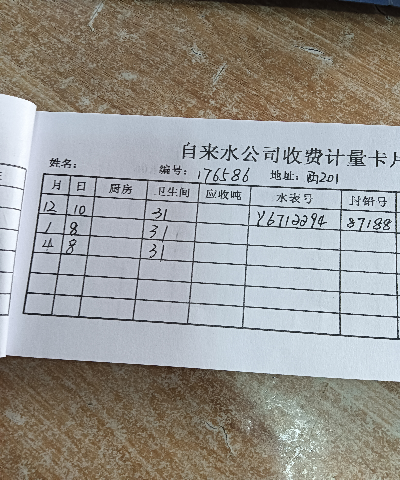 自来水公司收费计量卡片
姓名： 编号：176586 地址：西201
月 日 厨房 卫生间 应收吨 水表号 封铅号
12 10 31 Y6712294 87188
1 8 31
4 8 31